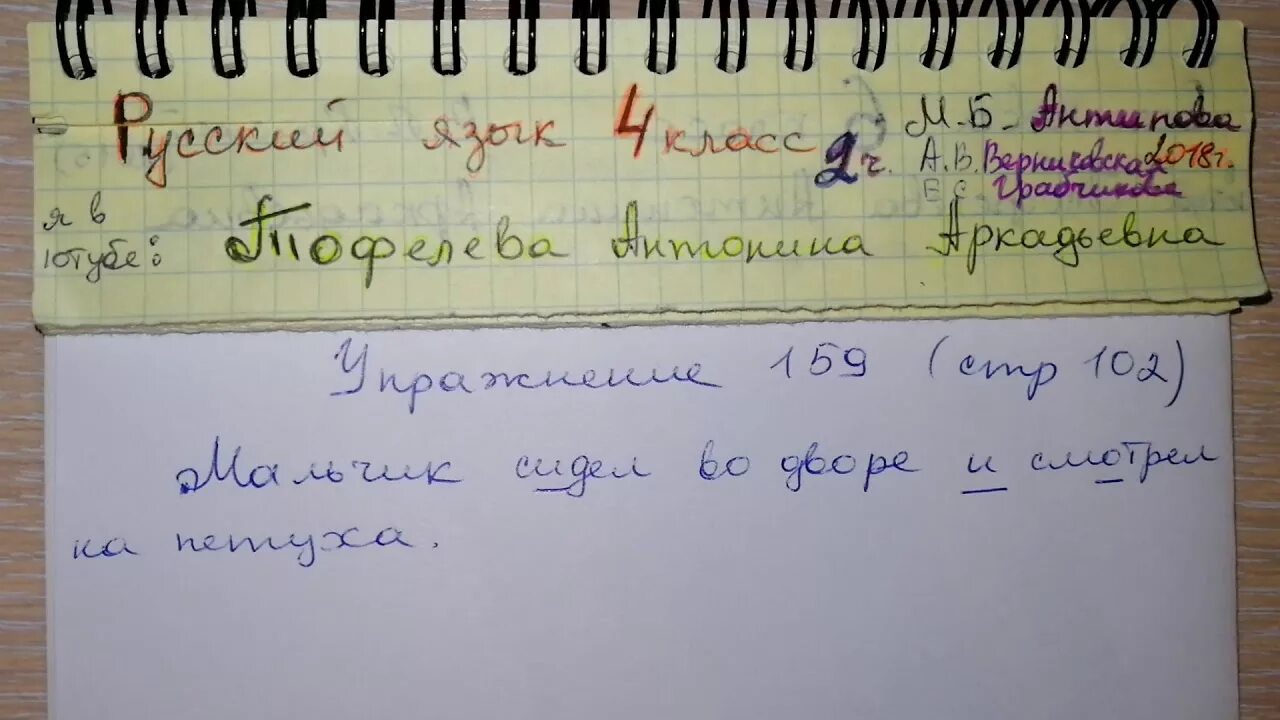 Русский язык 4 класс 2 ч.
М.Б. Антипова
А.В. Верниковская 2018г.
Е.С. Грабчикова
я в
ютубе: Тофелева Антонина Аркадьевна
Упражнение 159 (стр 102)
Мальчик сидел во дворе и смотрел
на петуха.